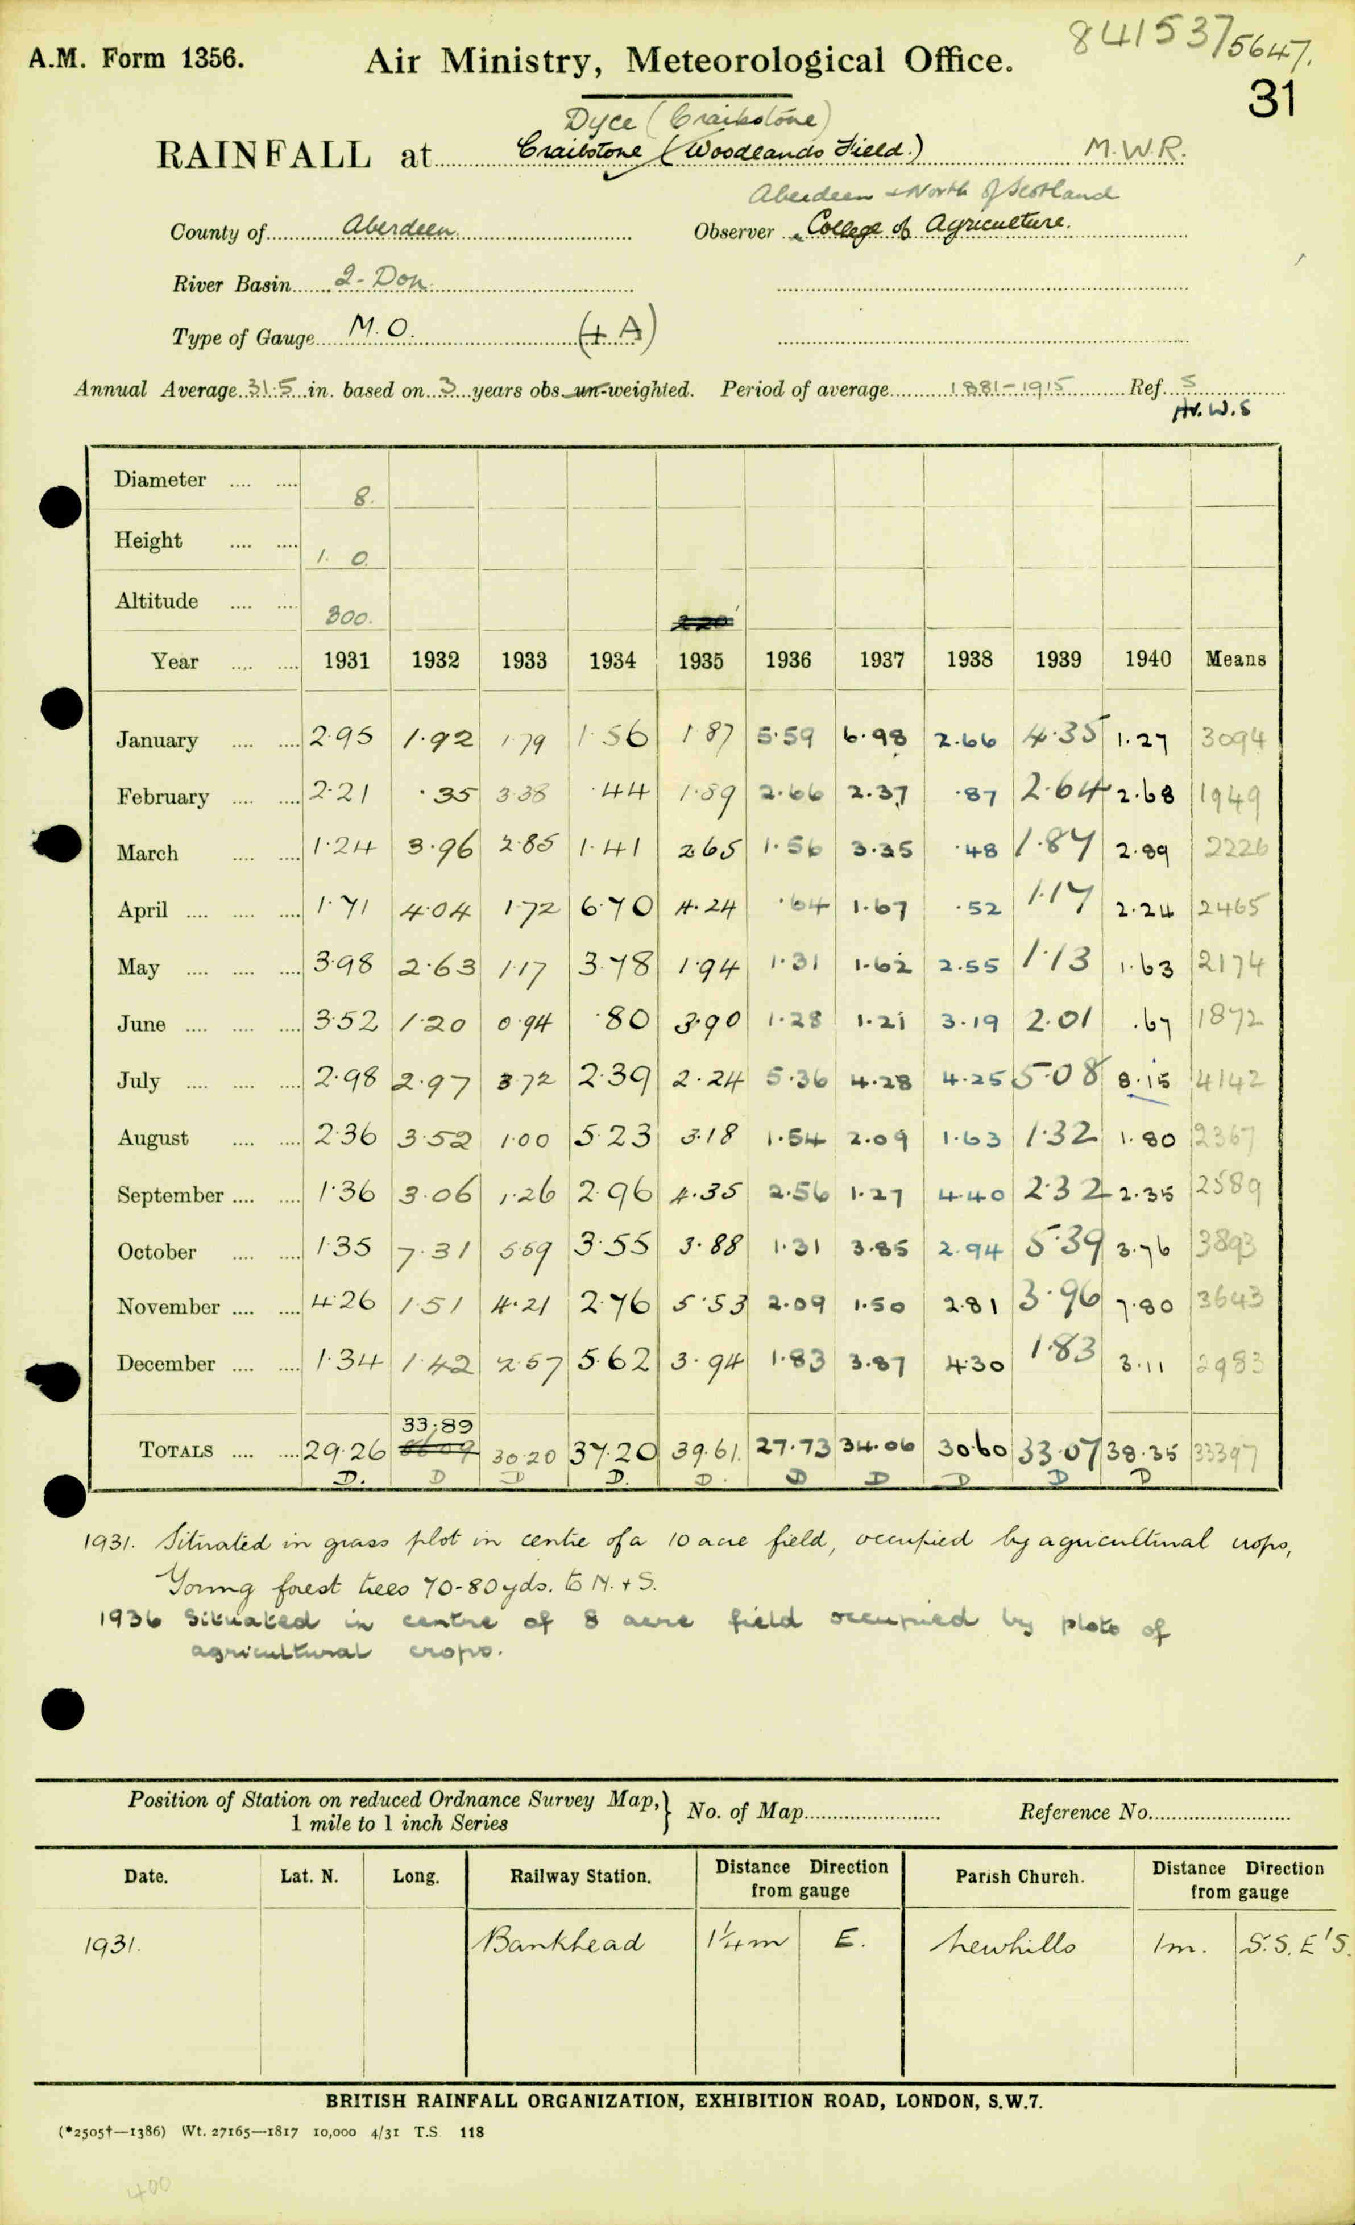 841537/5647.
A.M. Form 1356. Air Ministry, Meteorological Office.
31
Dyce (Craibstone)
RAINFALL at Craibstone (Woodlands Field.) M.W.R.
Aberdeen & North of Scotland
County of Aberdeen. Observer College of Agriculture.
River Basin 2-Don
Type of Gauge M.O. (+ A)
Annual Average 31.5 in. based on 3 years obs un-weighted. Period of average 1881-1915 Ref. S
Av.W.S
Diameter .... .... 8.
Height .... .... 1. 0.
Altitude .... .... 300. 220
Year .... .... 1931 1932 1933 1934 1935 1936 1937 1938 1939 1940 Means
January .... .... 2.95 1.92 1.79 1.56 1.87 5.59 6.98 2.66 4.35 1.27 3094
February .... .... 2.21 .35 3.38 .44 1.89 2.66 2.37 .87 2.64 2.68 1949
March .... .... 1.24 3.96 2.85 1.41 2.65 1.56 3.35 .48 1.87 2.89 2226
April .... .... .... 1.71 4.04 1.72 6.70 4.24 .64 1.67 .52 1.17 2.24 2465
May .... .... .... 3.98 2.63 1.17 3.78 1.94 1.31 1.62 2.55 1.13 1.63 2174
June .... .... .... 3.52 1.20 0.94 .80 3.90 1.28 1.21 3.19 2.01 .67 1872
July .... .... .... 2.98 2.97 3.72 2.39 2.24 5.36 4.28 4.25 5.08 8.15 4142
August .... .... 2.36 3.52 1.00 5.23 3.18 1.54 2.09 1.63 1.32 1.80 2367
September .... .... 1.36 3.06 1.26 2.96 4.35 2.56 1.27 4.40 2.32 2.35 2589
October .... .... 1.35 7.31 5.59 3.55 3.88 1.31 3.85 2.94 5.39 3.76 3893
November .... .... 4.26 1.51 4.21 2.76 5.53 2.09 1.50 2.81 3.96 7.80 3643
December .... .... 1.34 1.42 2.57 5.62 3.94 1.83 3.87 4.30 1.83 3.11 2983
33.89
TOTALS .... .... 29.26 30.20 37.20 39.61. 27.73 34.06 30.60 33.07 38.35 33397
D. D D D. D. D D D D D
1931. Situated in grass plot in centre of a 10 acre field, occupied by agricultural crops,
Young forest trees 70-80 yds. to N. + S.
1936 Situated in centre of 8 acre field occupied by plots of
agricultural crops.
Position of Station on reduced Ordnance Survey Map, } No. of Map Reference No.
1 mile to 1 inch Series
Date. Lat. N. Long. Railway Station. Distance Direction from gauge Parish Church. Distance Direction from gauge
1931. Bankhead 1¼m E. Newhills 1m. S.S.E'S.
BRITISH RAINFALL ORGANIZATION, EXHIBITION ROAD, LONDON, S.W.7.
(*2505†—1386) Wt. 27165—1817 10,000 4/31 T.S. 118
400